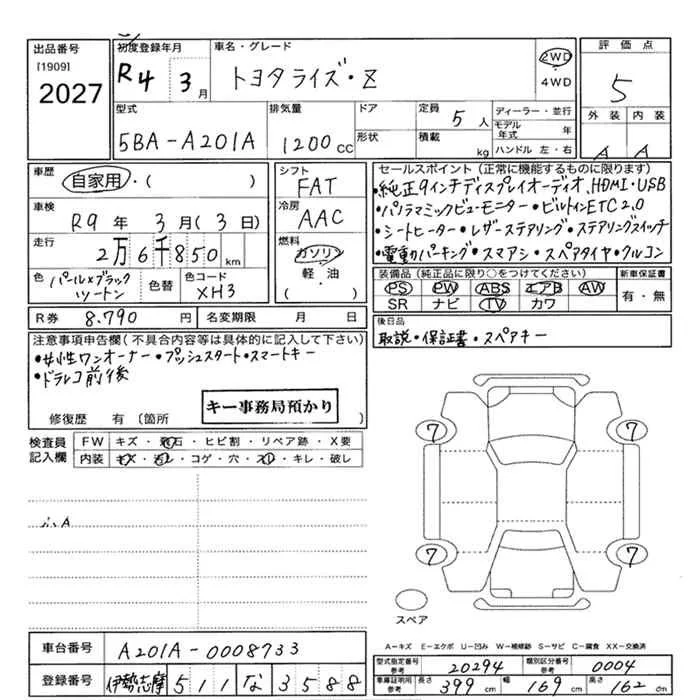 出品番号
[1909]
2027
初度登録年月
R4 3月
車名・グレード
トヨタライズ・Z
2WD
4WD
評価点
5
外装 内装
A A
型式
5BA-A201A
排気量
1200cc
ドア
形状
定員 5人
積載 kg
ディーラー・並行
モデル年式 年
ハンドル 左・右
車歴
自家用・( )
シフト
FAT
冷房
AAC
燃料
ガソリン
軽・油
( )
車検
R9年 3月(3日)
走行
2万6千850km
色
パール×ブラック
ツートン
色替
色コード
XH3
セールスポイント(正常に機能するものに限ります)
・純正9インチディスプレイオーディオ、HDMI・USB
・パノラミックビューモニター・ビルトインETC2.0
・シートヒーター・レザーステアリング・ステアリングスイッチ
・電動パーキング・スマアシ・スペアタイヤ・クルコン
装備品(純正品に限り○をつけてください)
PS PW ABS エアB AW
SR ナビ TV カワ
新車保証書
有・無
R券 8.790円
名変期限 月 日
後日品
取説・保証書・スペアキー
注意事項申告欄(不具合内容等は具体的に記入して下さい)
・女性ワンオーナー・プッシュスタート・スマートキー
・ドラレコ前後
キー事務局預かり
修復歴 有〔箇所
検査員
記入欄
FW キズ・飛石・ヒビ割・リペア跡・X要
内装 キズ・汚レ・コゲ・穴・スレ・キレ・破レ
7 7
7 7
スペア
車台番号 A201A-0008733
登録番号 伊勢志摩 511 な 3588
A-キズ E-エクボ U-凹み W-補修跡 S-サビ C-腐食 XX-交換済
型式指定番号
参考
20294
類別区分番号
参考
0004
車庫証明用
参考
長さ 399cm 幅 169cm 高さ 162cm